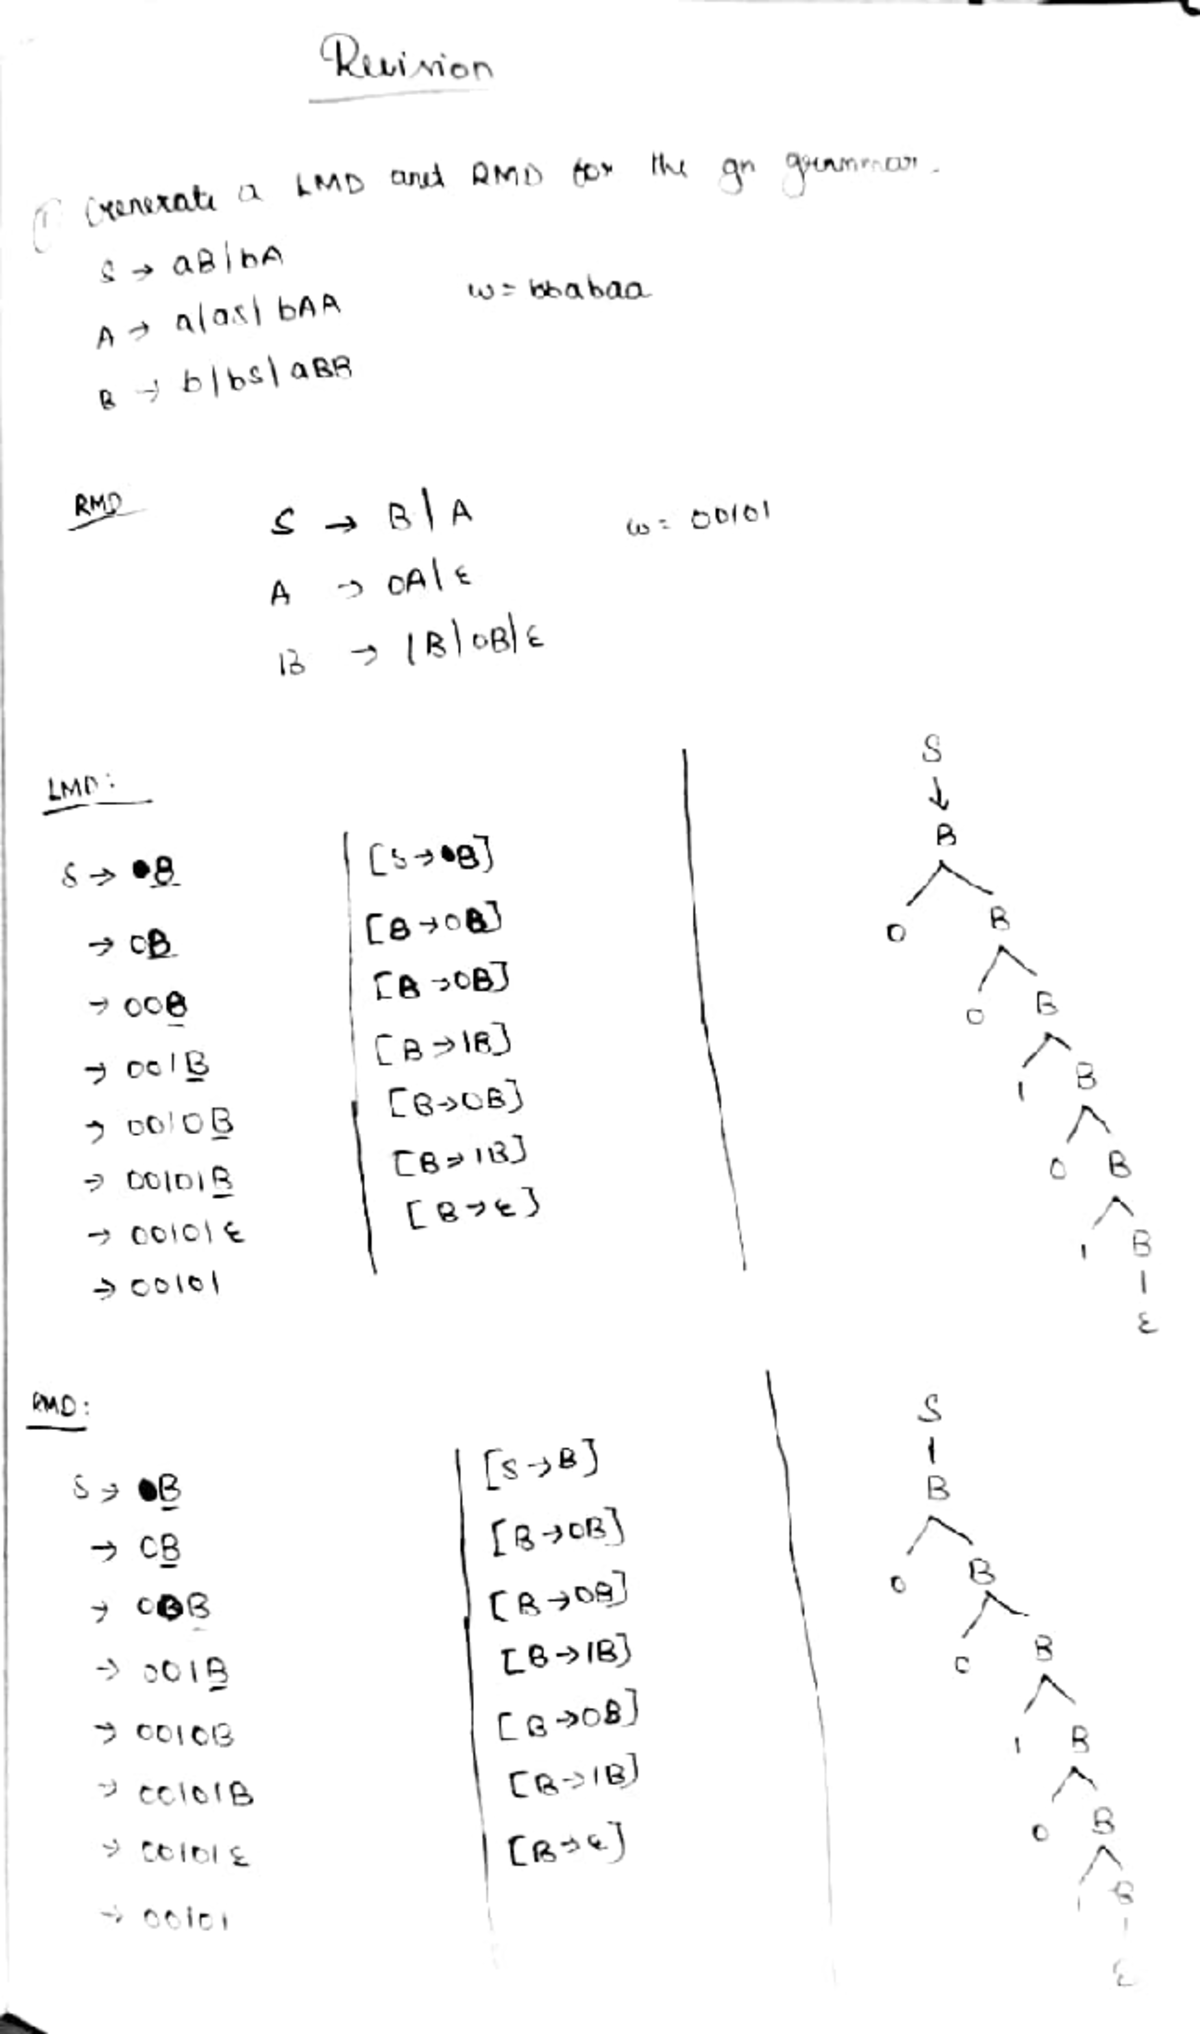 Revision
① Generate a LMD and RMD for the gn grammar.
S → aB|bA
w = bbabaa
A → a|as| bAA
B → b|bs| aBB
RMD
S → B|A
w = 00101
A → 0A|ε
B → 1B|0B|ε
LMD:
S → B [S → B]
→ 0B [B → 0B]
→ 00B [B → 0B]
→ 001B [B → 1B]
→ 0010B [B → 0B]
→ 00101B [B → 1B]
→ 00101ε [B → ε]
→ 00101
S
↓
B
0 B
0 B
1 B
0 B
1 B
ε
RMD:
S → B [S → B]
→ 0B [B → 0B]
→ 00B [B → 0B]
→ 001B [B → 1B]
→ 0010B [B → 0B]
→ 00101B [B → 1B]
→ 00101ε [B → ε]
→ 00101
S
B
0 B
0 B
1 B
0 B
1 B
ε